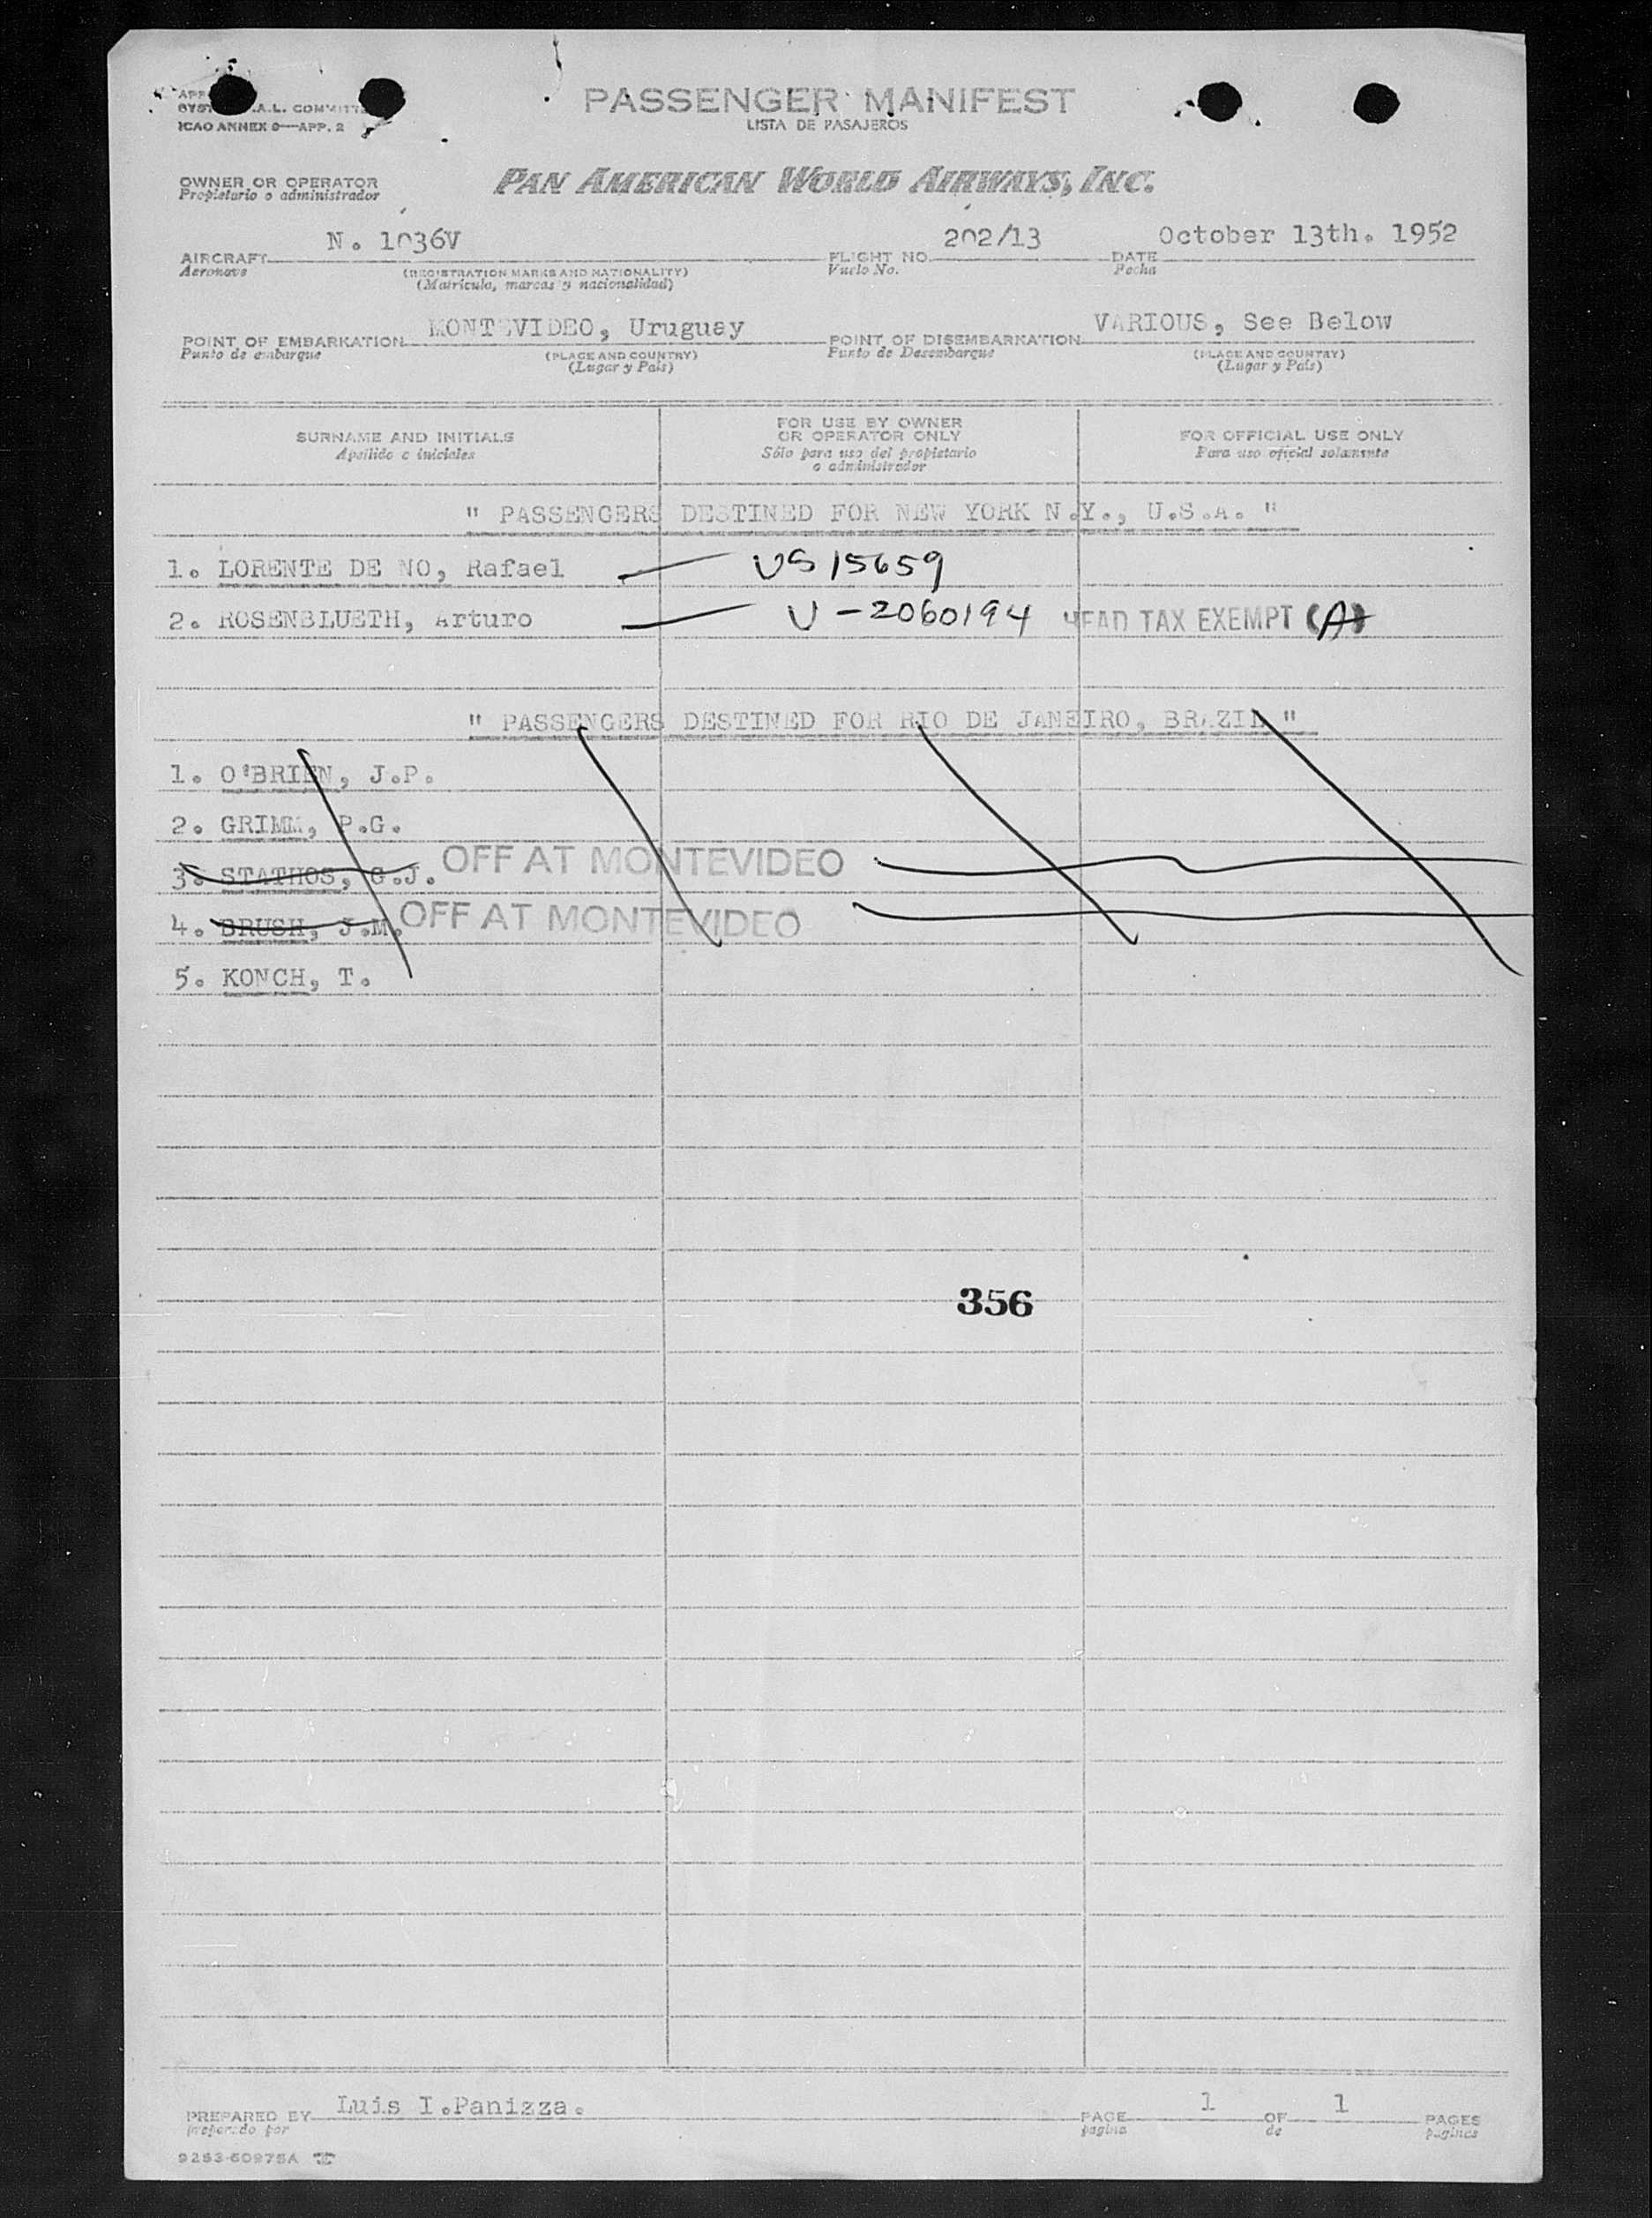 PASSENGER MANIFEST
LISTA DE PASAJEROS
A.L.
ICAO ANNEX 9—APP. 2
OWNER OR OPERATOR
Propietario o administrador
PAN AMERICAN WORLD AIRWAYS, INC.
AIRCRAFT N. 1036V FLIGHT NO. 202/13 DATE October 13th. 1952
Aeronave (REGISTRATION MARKS AND NATIONALITY) Vuelo No. Fecha
(Matrícula, marcas y nacionalidad)
POINT OF EMBARKATION MONTEVIDEO, Uruguay POINT OF DISEMBARKATION VARIOUS, See Below
Punto de embarque (PLACE AND COUNTRY) Punto de Desembarque (PLACE AND COUNTRY)
(Lugar y País) (Lugar y País)
SURNAME AND INITIALS
Apellido e iniciales
FOR USE BY OWNER
OR OPERATOR ONLY
Sólo para uso del propietario
o administrador
FOR OFFICIAL USE ONLY
Para uso oficial solamente
" PASSENGERS DESTINED FOR NEW YORK N.Y., U.S.A. "
1. LORENTE DE NO, Rafael — US 15659
2. ROSENBLUETH, Arturo — U-2060194 HEAD TAX EXEMPT (A)
" PASSENGERS DESTINED FOR RIO DE JANEIRO, BRAZIL "
1. O'BRIEN, J.P.
2. GRIMM, P.G.
3. STATHOS, G.J. OFF AT MONTEVIDEO
4. BRUSH, J.M. OFF AT MONTEVIDEO
5. KONCH, T.
356
PREPARED BY Luis I.Panizza. PAGE 1 OF 1 PAGES
preparado por página de páginas
9253-50975A